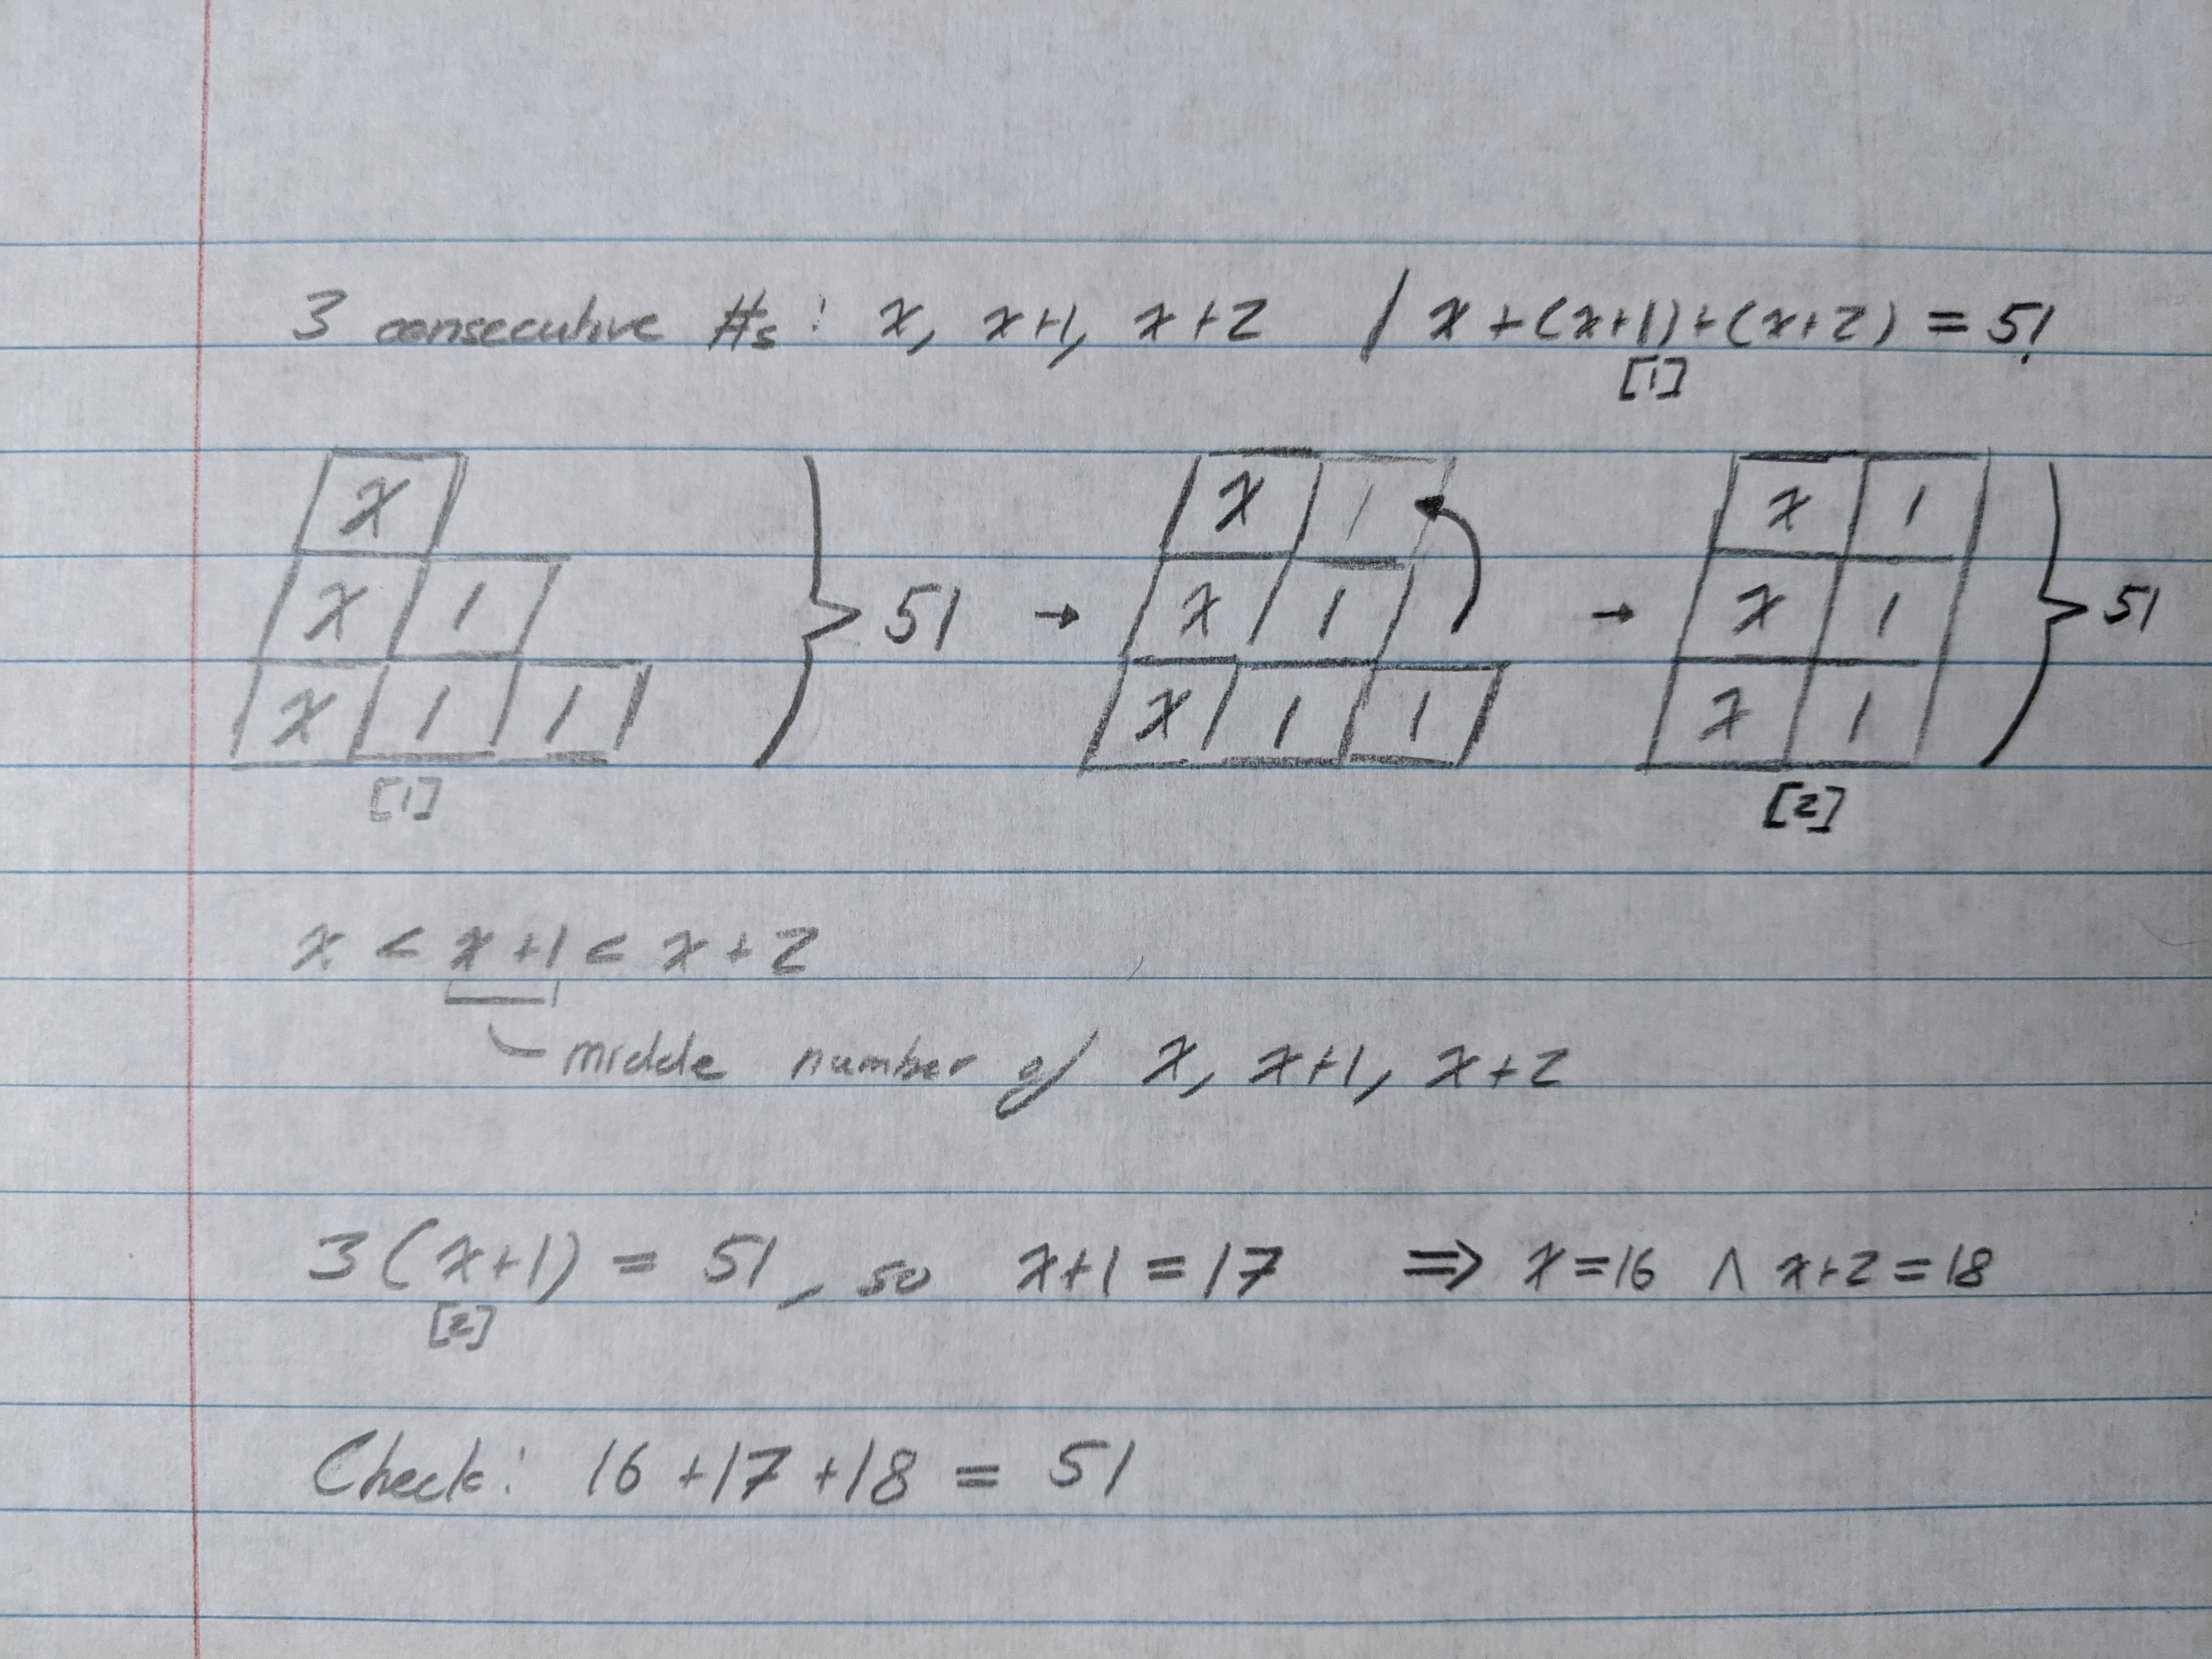 3 consecutive #s: x, x+1, x+2 / x+(x+1)+(x+2) = 51.
[1]
x x 1 x 1
x 1 } 51 → x 1 → x 1 } 51
x 1 1 x 1 1 x 1
[1] [2]
x < x+1 < x+2
middle number of x, x+1, x+2
3(x+1) = 51, so x+1 = 17 ⇒ x=16 ∧ x+2=18
[2]
Check: 16+17+18 = 51